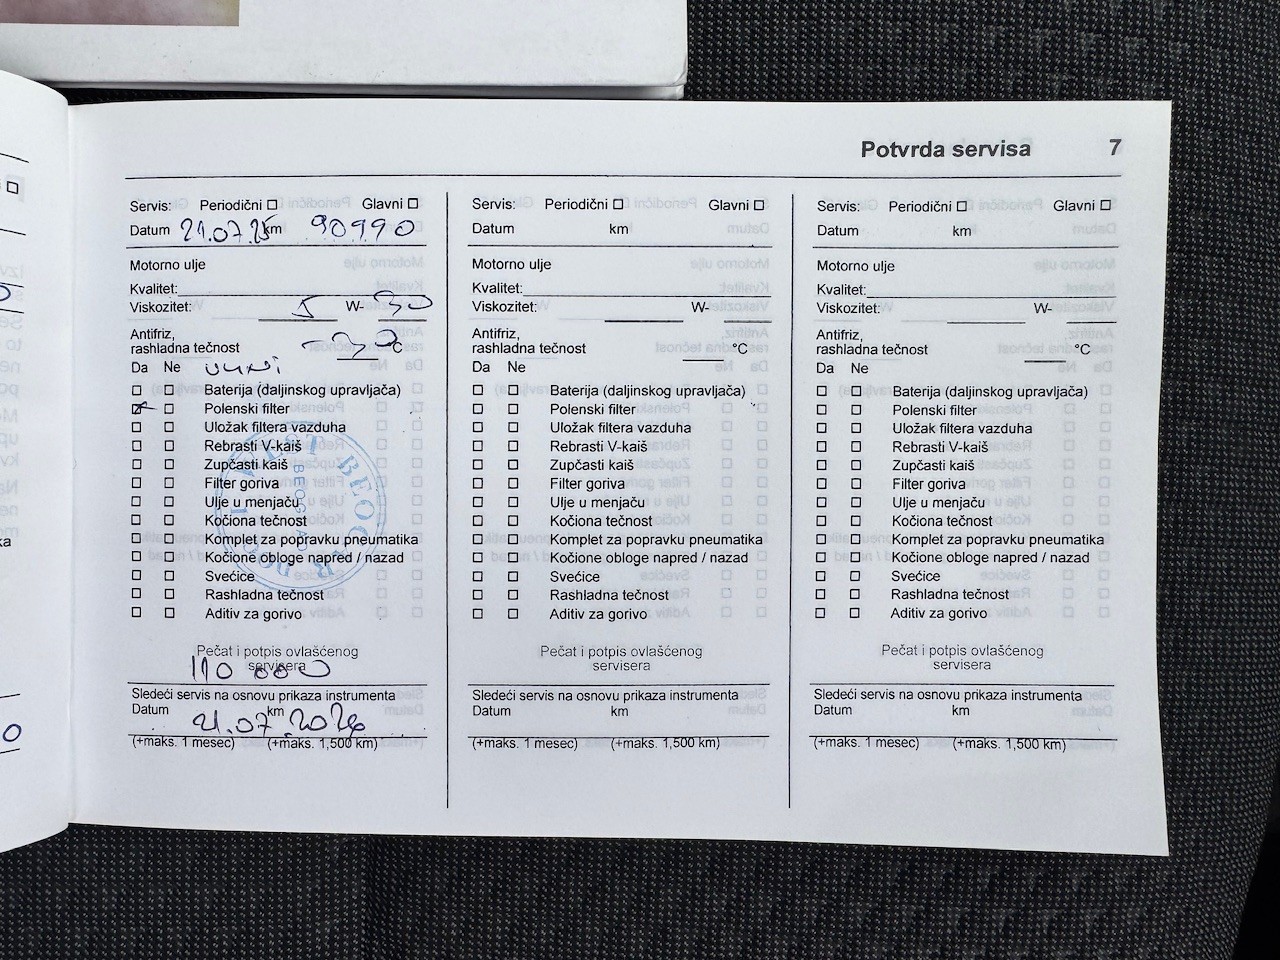 Potvrda servisa 7
Servis: Periodični Glavni
Datum 21.07.25 km 90990
Motorno ulje
Kvalitet:
Viskozitet: 5 W- 30
Antifriz,
rashladna tečnost -30 °C
Da Ne
Baterija (daljinskog upravljača)
Polenski filter
Uložak filtera vazduha
Rebrasti V-kaiš
Zupčasti kaiš
Filter goriva
Ulje u menjaču
Kočiona tečnost
Komplet za popravku pneumatika
Kočione obloge napred / nazad
Svećice
Rashladna tečnost
Aditiv za gorivo
BEOGRAD
Pečat i potpis ovlašćenog
servisera
110 000
Sledeći servis na osnovu prikaza instrumenta
Datum km
21.07.2026
(+maks. 1 mesec) (+maks. 1,500 km)
Servis: Periodični Glavni
Datum km
Motorno ulje
Kvalitet:
Viskozitet: W-
Antifriz,
rashladna tečnost °C
Da Ne
Baterija (daljinskog upravljača)
Polenski filter
Uložak filtera vazduha
Rebrasti V-kaiš
Zupčasti kaiš
Filter goriva
Ulje u menjaču
Kočiona tečnost
Komplet za popravku pneumatika
Kočione obloge napred / nazad
Svećice
Rashladna tečnost
Aditiv za gorivo
Pečat i potpis ovlašćenog
servisera
Sledeći servis na osnovu prikaza instrumenta
Datum km
(+maks. 1 mesec) (+maks. 1,500 km)
Servis: Periodični Glavni
Datum km
Motorno ulje
Kvalitet:
Viskozitet: W-
Antifriz,
rashladna tečnost °C
Da Ne
Baterija (daljinskog upravljača)
Polenski filter
Uložak filtera vazduha
Rebrasti V-kaiš
Zupčasti kaiš
Filter goriva
Ulje u menjaču
Kočiona tečnost
Komplet za popravku pneumatika
Kočione obloge napred / nazad
Svećice
Rashladna tečnost
Aditiv za gorivo
Pečat i potpis ovlašćenog
servisera
Sledeći servis na osnovu prikaza instrumenta
Datum km
(+maks. 1 mesec) (+maks. 1,500 km)